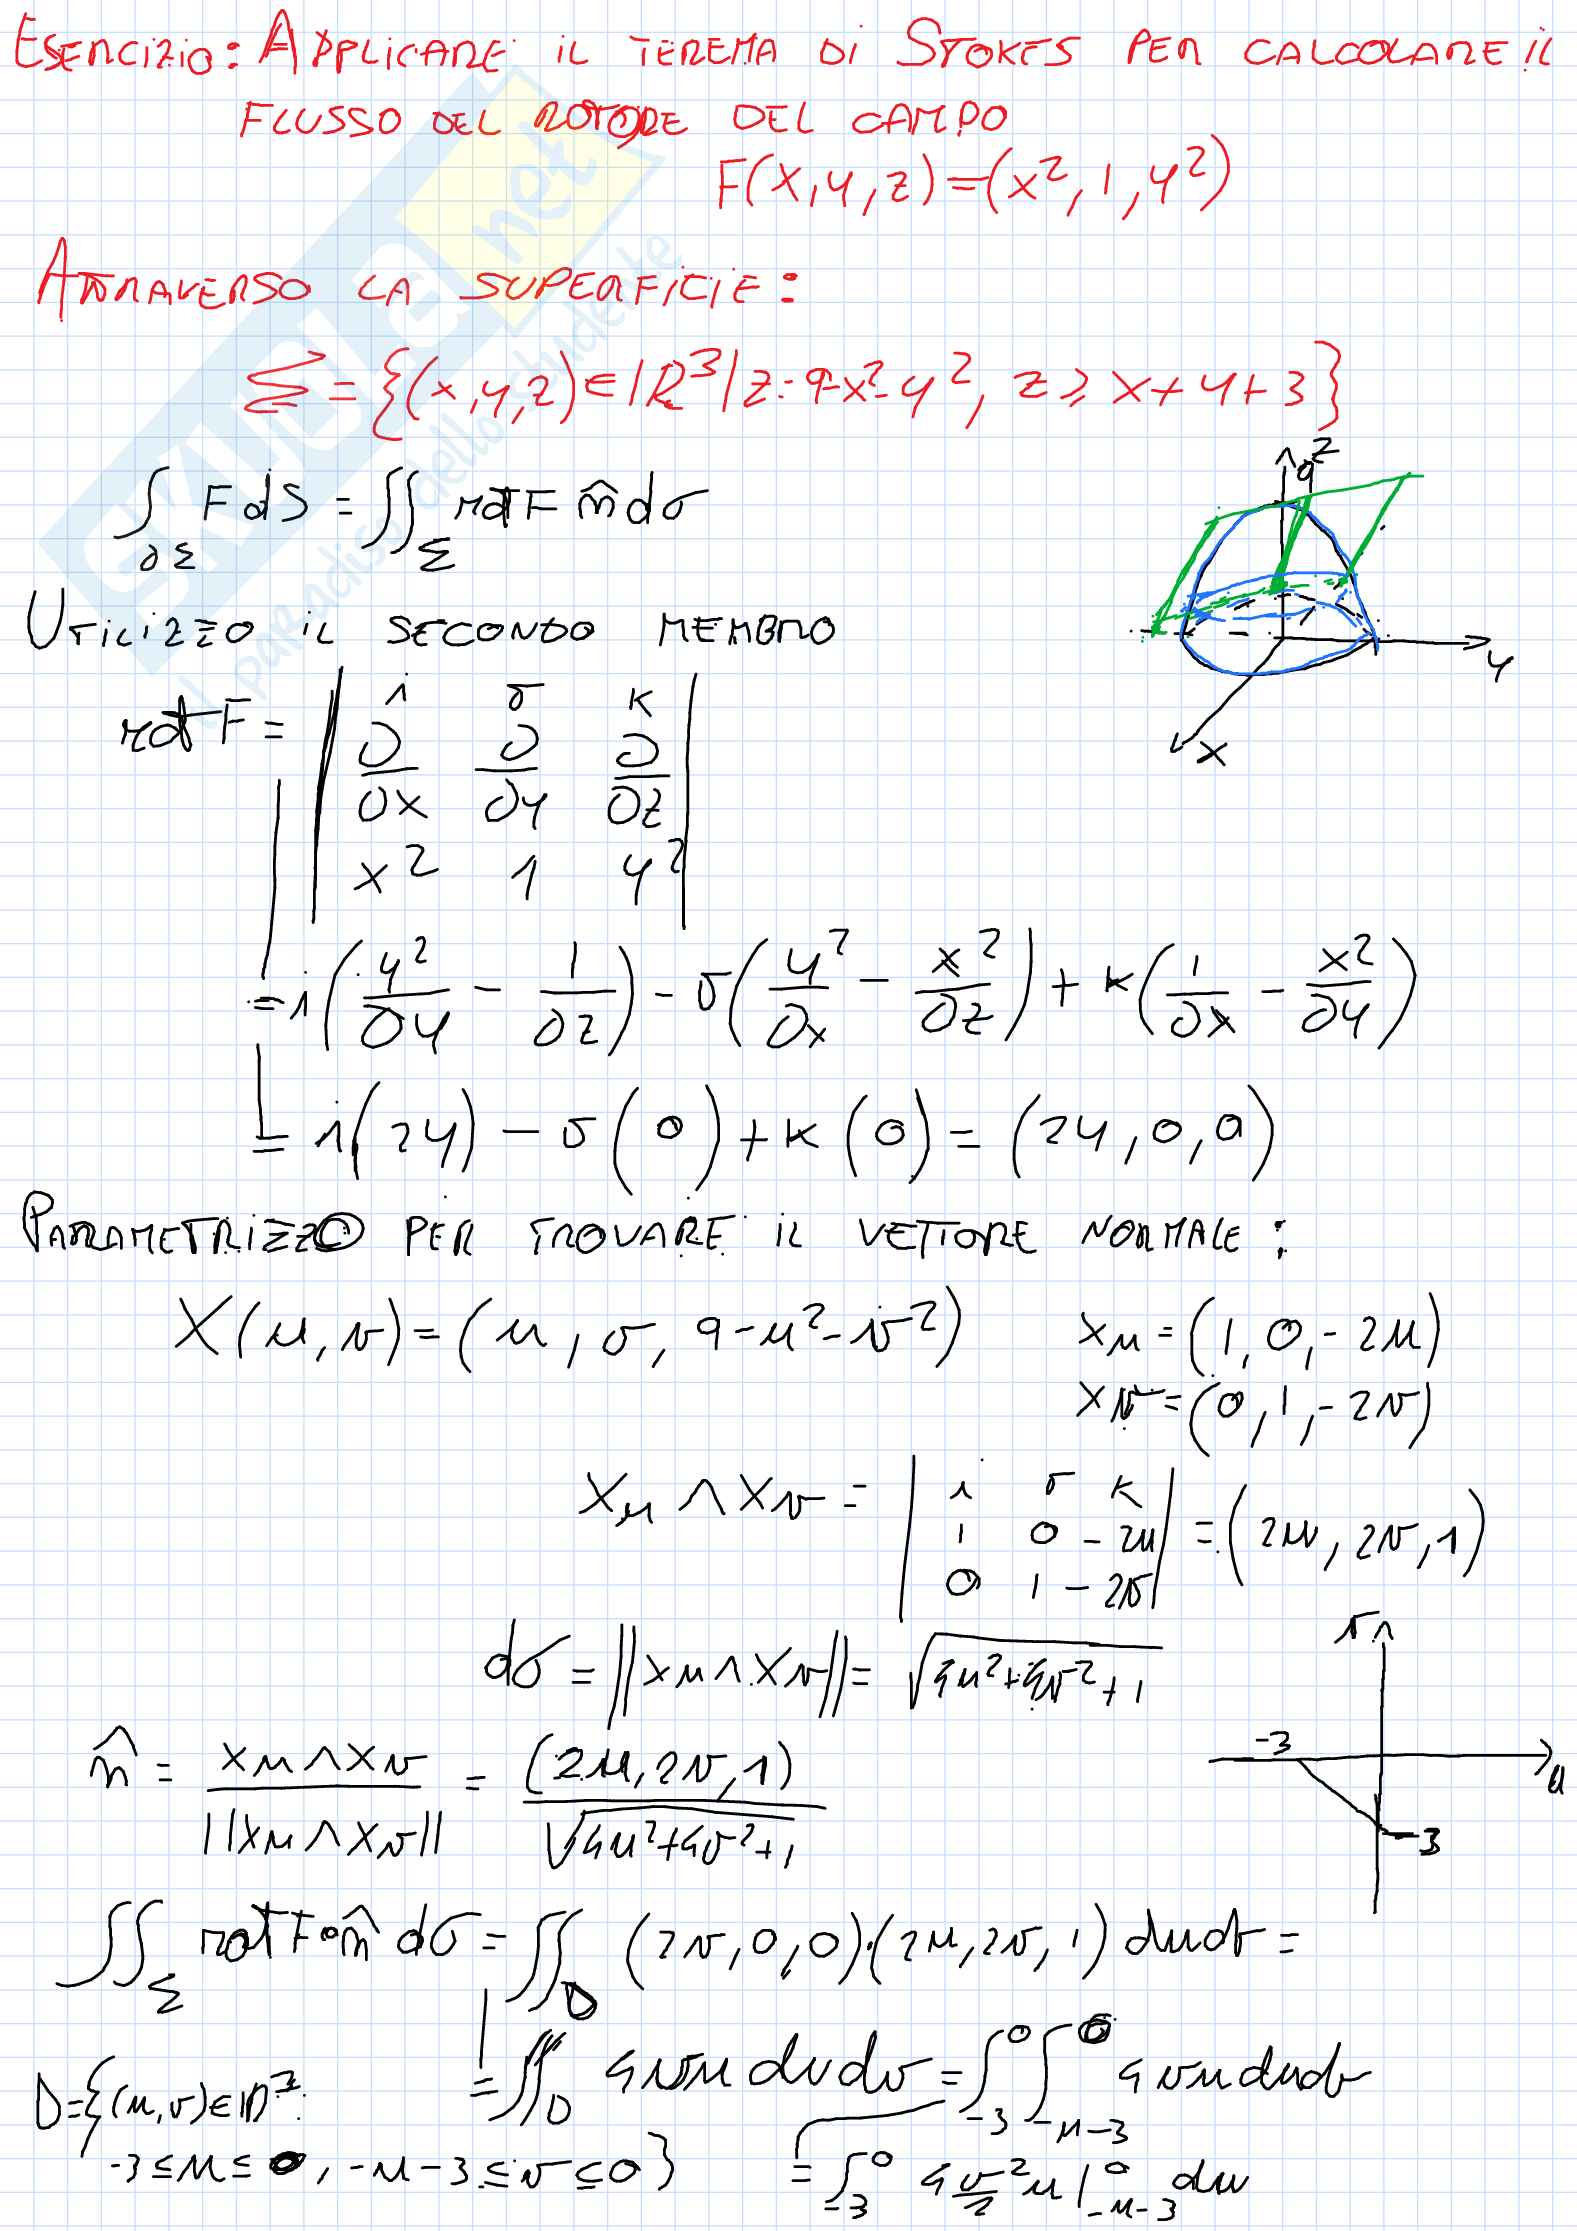 ESERCIZIO: APPLICARE IL TEREMA DI STOKES PER CALCOLARE IL
FLUSSO DEL ROTORE DEL CAMPO
F(x,y,z)=(x²,1,y²)
ATTRAVERSO LA SUPERFICIE:
Σ={(x,y,z)∈ℝ³|z=9-x²-y², z≥x+y+3}
∫_∂Σ F dS = ∬_Σ rot F n̂ dσ
z
9
y
x
UTILIZZO IL SECONDO MEMBRO
rot F = | i j k
∂/∂x ∂/∂y ∂/∂z
x² 1 y² |
= i(y²/∂y - 1/∂z) - j(y²/∂x - x²/∂z) + k(1/∂x - x²/∂y)
= i(2y) - j(0) + k(0) = (2y,0,0)
PARAMETRIZZO PER TROVARE IL VETTORE NORMALE:
X(u,v)=(u,v,9-u²-v²) xu=(1,0,-2u)
xv=(0,1,-2v)
xu∧xv = | i j k
1 0 -2u
0 1 -2v | = (2u,2v,1)
dσ=||xu∧xv||=√4u²+4v²+1
n̂ = xu∧xv/||xu∧xv|| = (2u,2v,1)/√4u²+4v²+1
v
-3
u
-3
∬_Σ rot F∘n̂ dσ = ∬_D (2v,0,0)·(2u,2v,1) du dv =
= ∬_D 4vu du dv = ∫_-3^0 ∫_-u-3^0 4vu du dv
D={(u,v)∈ℝ²:
-3≤u≤0, -u-3≤v≤0}
= ∫_-3^0 4 v²/2 u |_-u-3^0 du
SKUOLA.net
il paradiso dello studente